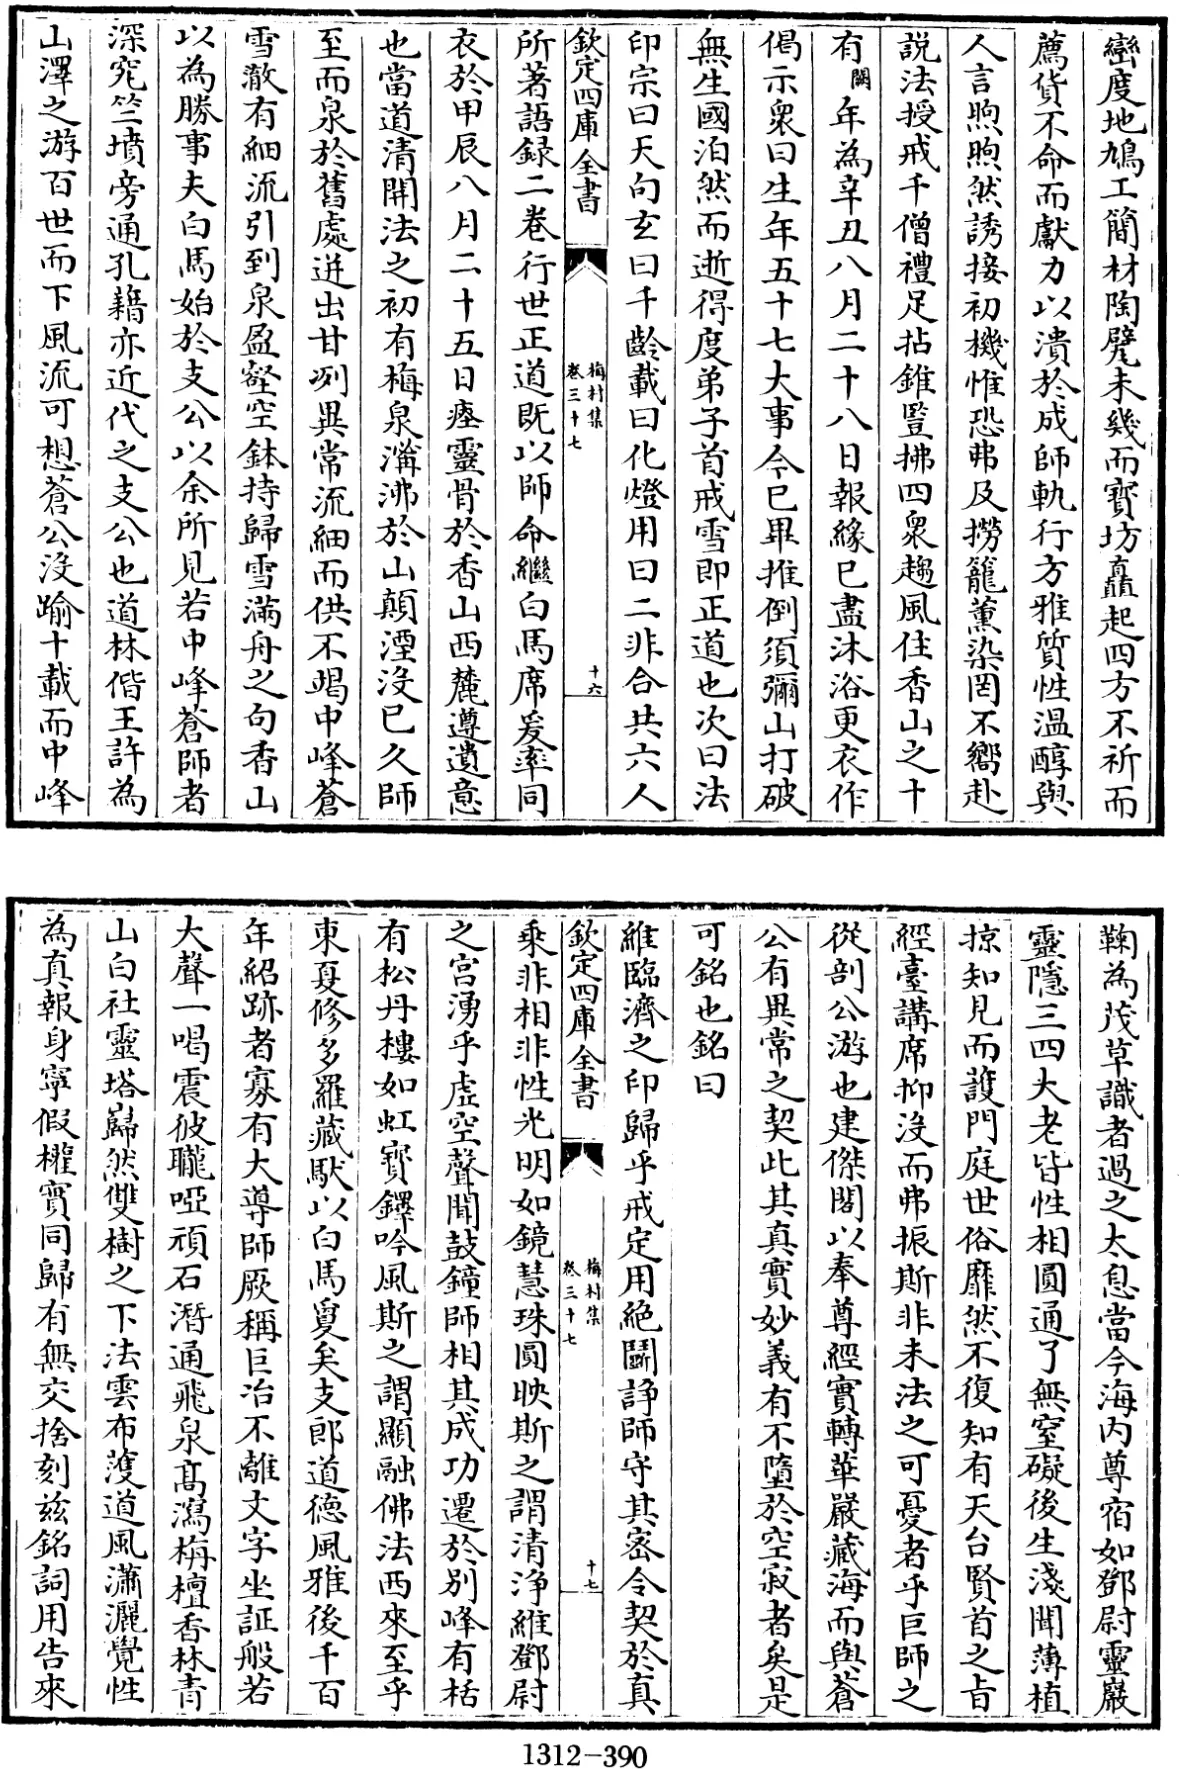 巒度地鳩工簡材陶甓未幾而寳坊矗起四方不祈而
薦貨不命而獻力以潰於成師軌行方雅質性温醇與
人言煦煦然誘接初機惟恐弗及撈籠薰染罔不嚮赴
説法授戒千僧禮足拈錐豎拂四衆趨風住香山之十
有闕年為辛丑八月二十八日報縁已盡沐浴更衣作
偈示衆曰生年五十七大事今已畢推倒須彌山打破
無生國泊然而逝得度弟子首戒雪即正道也次曰法
印宗曰天句玄曰千齡載曰化燈用曰二非合共六人
欽定四庫全書
梅村集
卷三十七
十六
所著語録二巻行世正道既以師命繼白馬席爰率同
衣於甲辰八月二十五日瘞靈骨於香山西麓遵遺意
也當道清開法之初有梅泉㵎沸於山顛湮没已久師
至而泉於舊處迸出甘冽異常流細而供不竭中峰蒼
雪澈有細流引到泉盈壑空鉢持歸雪滿舟之句香山
以為勝事夫白馬始於支公以余所見若中峰蒼師者
深究竺墳旁通孔籍亦近代之支公也道林偕王許為
山澤之游百世而下風流可想蒼公没踰十載而中峰
鞠為茂草識者過之太息當今海内尊宿如鄧尉靈巖
靈隱三四大老皆性相圓通了無窒礙後生淺聞薄植
掠知見而護門庭世俗靡然不復知有天台賢首之㫖
經臺講席抑没而弗振斯非末法之可憂者乎巨師之
從剖公游也建傑閣以奉尊經實轉華嚴藏海而與蒼
公有異常之契此其真實妙義有不墮於空寂者矣是
可銘也銘曰
維臨濟之印歸乎戒定用絶鬬諍師守其密令契於真
欽定四庫全書
梅村集
卷三十七
十七
乘非相非性光明如鏡慧珠圓映斯之謂清淨維鄧尉
之宫湧乎虚空聲聞鼓鐘師相其成功遷於别峰有栝
有松丹樓如虹寳鐸吟風斯之謂顯融佛法西來至乎
東夏修多羅藏馱以白馬夐矣支郎道徳風雅後千百
年紹跡者寡有大導師厥稱巨冶不離文字坐証般若
大聲一喝震彼聾啞頑石潛通飛泉髙瀉栴檀香林青
山白社靈塔巋然雙樹之下法雲布濩道風瀟灑覺性
為真報身寧假權實同歸有無交捨刻兹銘詞用告來
1312-390